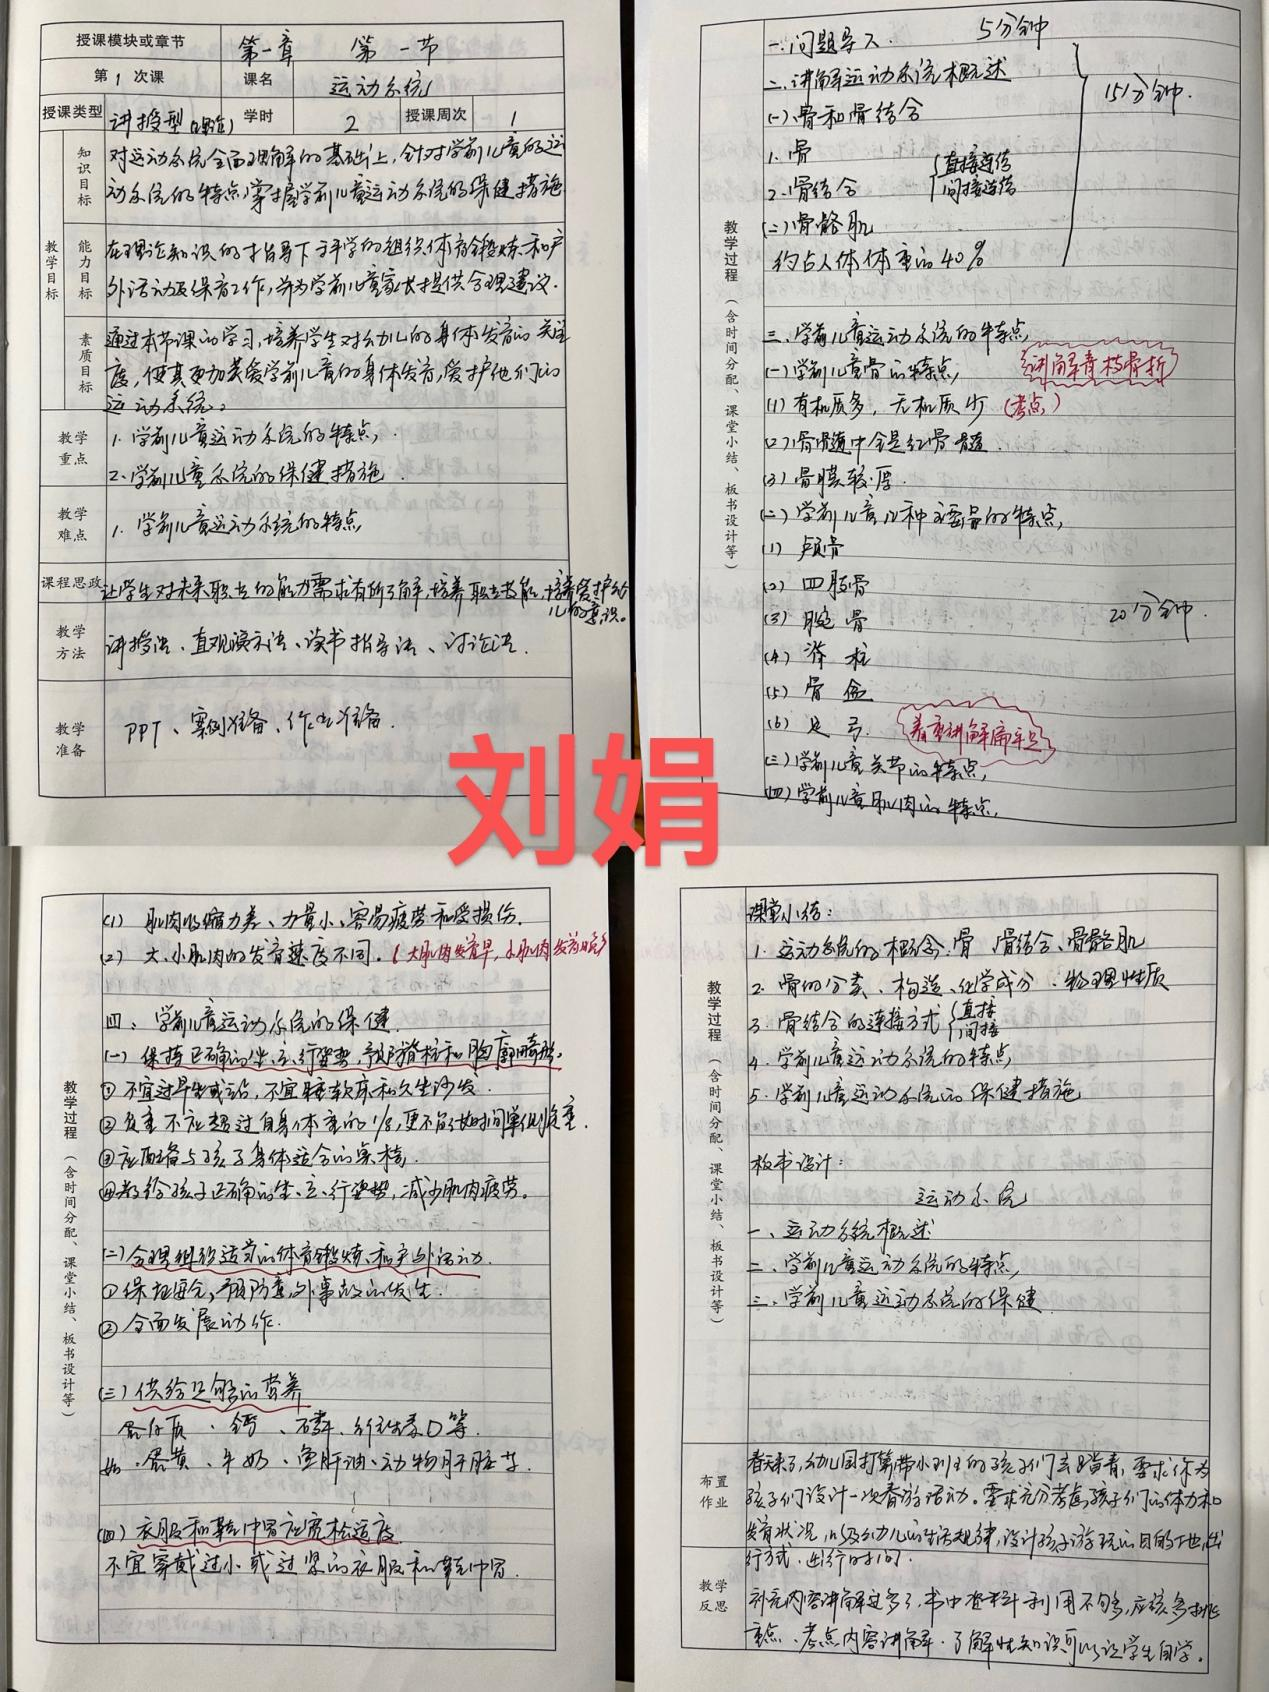 授课模块或章节 第一章 第一节
第 1 次课 课名 运动系统
授课类型 讲授型(理论) 学时 2 授课周次 1
教学目标
知识目标
对运动系统全面理解的基础上,针对学前儿童的运
动系统的特点,掌握学前儿童运动系统的保健措施
能力目标
在理论知识的指导下科学的组织体育锻炼和户
外活动及保育工作,并为学前儿童家长提供合理建议.
素质目标
通过本节课的学习,培养学生对幼儿的身体发育的关注
度,使其更加关爱学前儿童的身体发育,爱护他们的
运动系统。
教学重点
1. 学前儿童运动系统的特点,
2. 学前儿童系统的保健措施.
教学难点
1. 学前儿童运动系统的特点
课程思政
让学生对未来职业的能力需求有所了解,培养职业技能,培养爱护幼
儿的意识。
教学方法
讲授法、直观演示法、读书指导法、讨论法.
教学准备
PPT、案例准备、作业准备.
教学过程(含时间分配、课堂小结、板书设计等)
一.问题导入. 5分钟
二.讲解运动系统概述
15分钟.
(一)骨和骨结合
1.骨
2.骨结合 {直接连结
间接连结
(二)骨骼肌
约占人体体重的40%
三.学前儿童运动系统的特点,
(一)学前儿童骨的特点, 讲解青枝骨折
(1)有机质多,无机质少 (考点)
(2)骨髓中全是红骨髓.
(3)骨膜较厚.
(二)学前儿童几种主要骨的特点,
(1) 颅骨
(2) 四肢骨
(3) 腕骨 20分钟.
(4) 脊柱
(5) 骨盆
(6) 足弓. 着重讲解扁平足
(三)学前儿童关节的特点,
(四)学前儿童肌肉的特点.
刘娟
教学过程(含时间分配、课堂小结、板书设计等)
(1) 肌肉收缩力差、力量小、容易疲劳和受损伤.
(2) 大、小肌肉的发育速度不同.(大肌肉发育早,小肌肉发育晚)
四、学前儿童运动系统的保健.
(一)保持正确的坐、立、行姿势,预防脊柱和胸廓畸形.
①不宜过早坐或站,不宜睡软床和久坐沙发.
②负重不应超过自身体重的1/8,更不能长时间单侧负重.
③应配备与孩子身体适合的桌椅.
④教给孩子正确的坐、立、行姿势,减少肌肉疲劳.
(二)合理组织适当的体育锻炼和户外活动.
①保证安全,预防意外事故的发生.
②全面发展动作.
(三)供给足够的营养
蛋白质、钙、磷、维生素D等.
如.蛋黄、牛奶、鱼肝油、动物肝脏等.
(四)衣服和鞋帽应宽松适度
不宜穿戴过小或过紧的衣服和鞋帽.
教学过程(含时间分配、课堂小结、板书设计等)
课堂小结:
1. 运动系统的概念:骨 骨结合、骨骼肌
2. 骨的分类、构造、化学成分、物理性质
3. 骨结合的连接方式{直接
间接
4. 学前儿童运动系统的特点,
5. 学前儿童运动系统的保健措施
板书设计:
运动系统
一、运动系统概述
二、学前儿童运动系统的特点,
三、学前儿童运动系统的保健.
布置作业
春天来了,幼儿园打算带小班的孩子们去踏青,要求你为
孩子们设计一次春游活动。要求充分考虑孩子们的体力和
发育状况,以及幼儿的生活规律,设计孩子游玩的目的地,出
行方式.进行时间.
教学反思
补充内容讲解过多了,书中资料利用不够多,应该多挑
重点、考点内容讲解.了解性知识可以让学生自学.